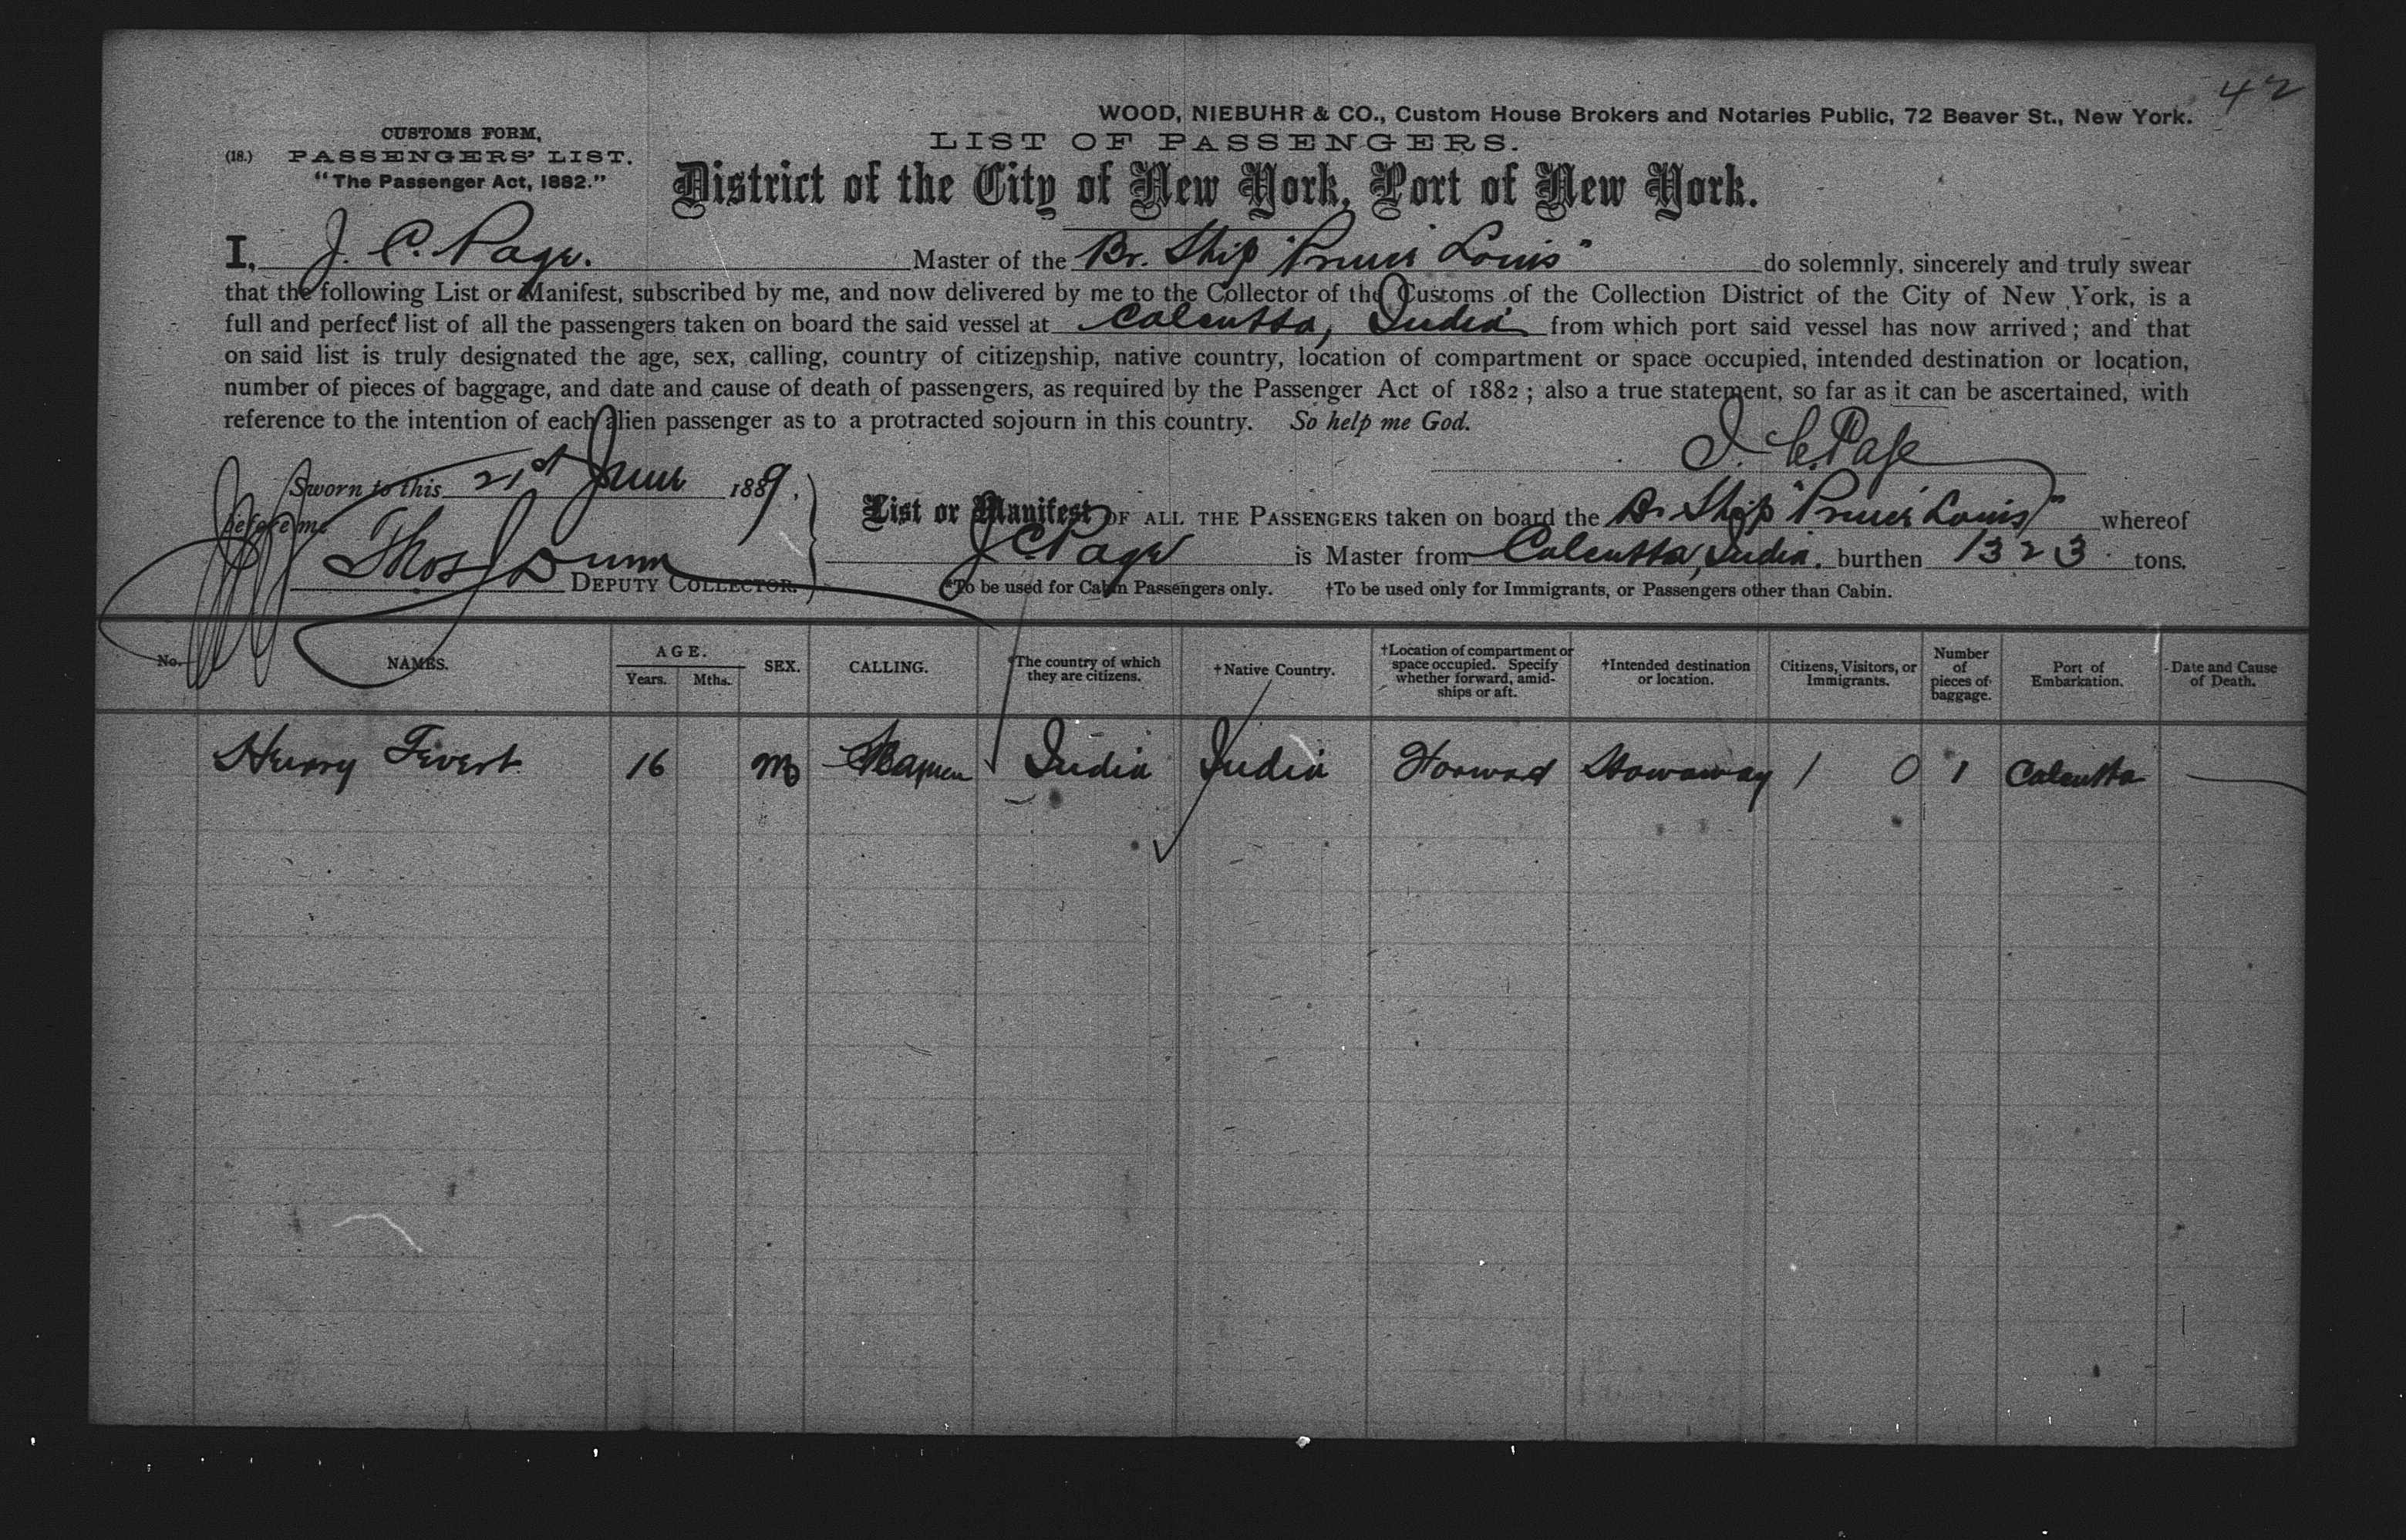 42
WOOD, NIEBUHR & CO., Custom House Brokers and Notaries Public, 72 Beaver St., New York.
CUSTOMS FORM,
(18.) PASSENGERS' LIST.
"The Passenger Act, 1882."
LIST OF PASSENGERS.
District of the City of New York, Port of New York.
I, J. C. Page. Master of the Br. Ship "Prince Louis" do solemnly, sincerely and truly swear
that the following List or Manifest, subscribed by me, and now delivered by me to the Collector of the Customs of the Collection District of the City of New York, is a
full and perfect list of all the passengers taken on board the said vessel at Calcutta, India from which port said vessel has now arrived; and that
on said list is truly designated the age, sex, calling, country of citizenship, native country, location of compartment or space occupied, intended destination or location,
number of pieces of baggage, and date and cause of death of passengers, as required by the Passenger Act of 1882; also a true statement, so far as it can be ascertained, with
reference to the intention of each alien passenger as to a protracted sojourn in this country. So help me God.
J. C. Page
Sworn to this 21st June 1889,
before me
Thos Dunn
DEPUTY COLLECTOR.
List or Manifest OF ALL THE PASSENGERS taken on board the Br Ship "Prince Louis" whereof
J C Page is Master from Calcutta, India. burthen 1323 tons.
*To be used for Cabin Passengers only. †To be used only for Immigrants, or Passengers other than Cabin.
No. NAMES. AGE. Years. Mths. SEX. CALLING. *The country of which they are citizens. †Native Country. †Location of compartment or space occupied. Specify whether forward, amidships or aft. †Intended destination or location. Citizens, Visitors, or Immigrants. Number of pieces of baggage. Port of Embarkation. Date and Cause of Death.
Henry 16 M Seaman India India Forward Stowaway 1 0 1 Calcutta